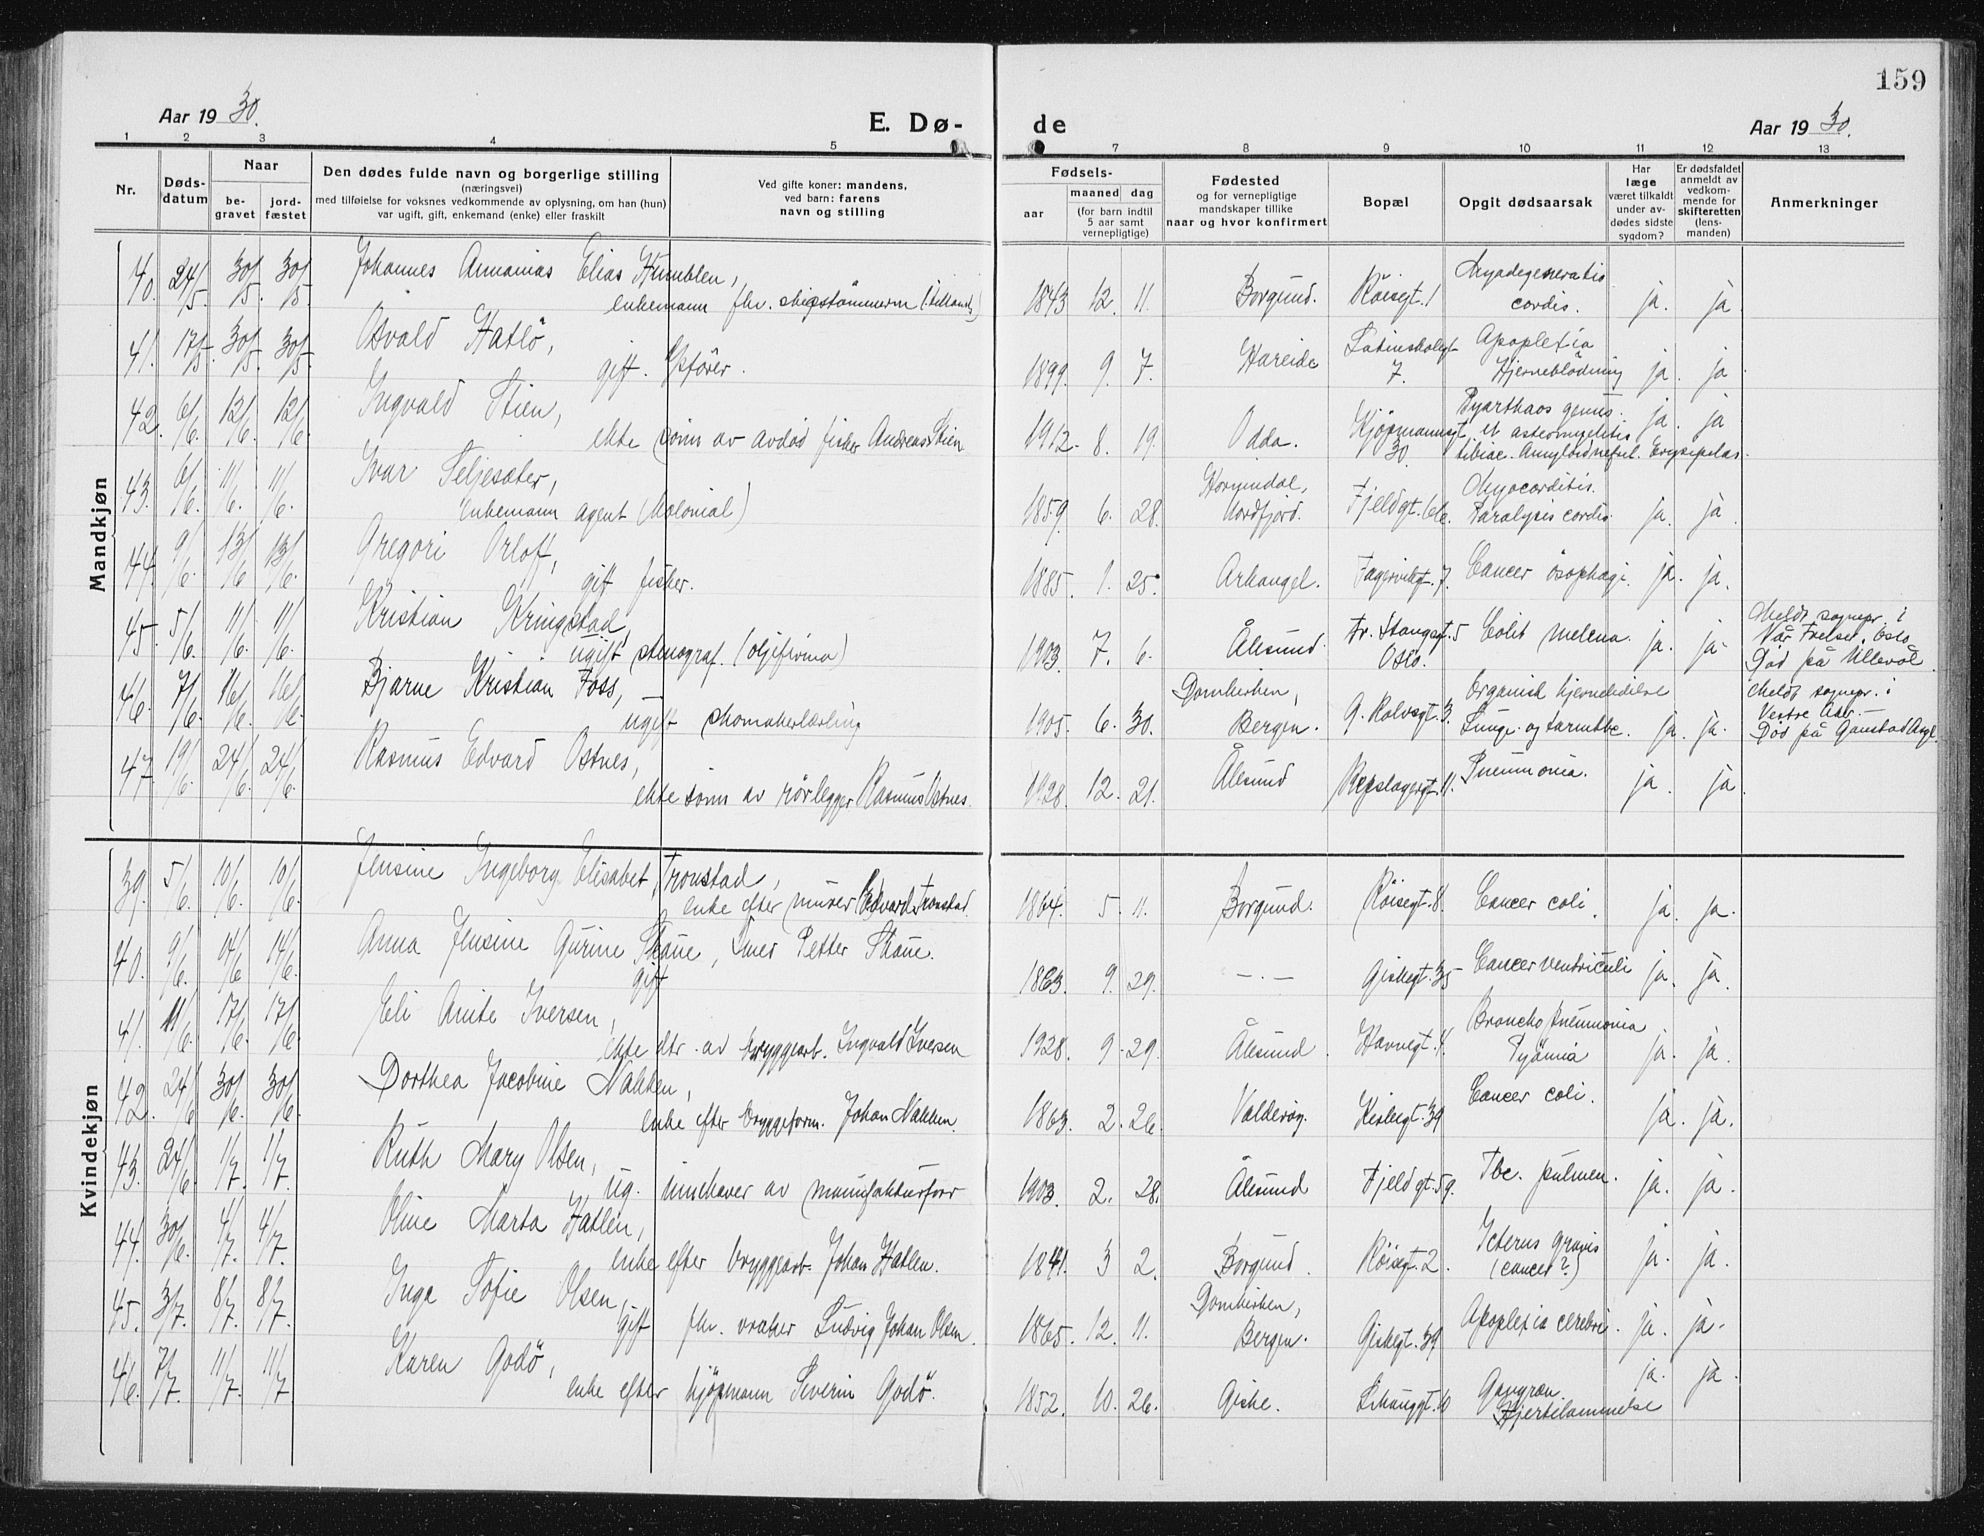 159
Aar 1930.
E. Dø-
de
Aar 1930.
1 2 3 4 5 7 8 9 10 11 12 13
Nr.
Døds-
datum
Naar
be-
gravet
jord-
fæstet
Den dødes fulde navn og borgerlige stilling
(næringsvei)
med tilføielse for voksnes vedkommende av oplysning, om han (hun)
var ugift, gift, enkemand (enke) eller fraskilt
Ved gifte koner: mandens,
ved barn: farens
navn og stilling
Fødsels-
aar
maaned dag
(for barn indtil
5 aar samt
vernepligtige)
Fødested
og for vernepligtige
mandskaper tillike
naar og hvor konfirmert
Bopæl
Opgit dødsaarsak
Har
læge
været tilkaldt
under av-
dødes sidste
sygdom?
Er dødsfaldet
anmeldt av
vedkom-
mende for
skifteretten
(lens-
manden)
Anmerkninger
Mandkjøn
40. 24/5. 30/5. 30/5. Johannes Annanias Elias Humblen,
enkemann fhv. skipstömmerm
1843 12. 11. Borgund. Röisgt. 1 Myodegeneratio
cordis. ja. ja
41. 17/5. 30/5. 30/5. Osvald Hatlö,
gift. 1899. 9. 7. Hareide Latinskolegt
7. Apoplexia
Hjerneblödning ja. ja
42. 6/6. 12/6. 12/6. Ingvald Stien,
ekte sönn av avdöd fisker Andreas Stien
1912. 8. 19. Odda. Kjöpmannsgt
30. Pyarthros genus.
et osteomyelitis
tibiae. Amyloidnefrit. Erysipelas. ja. ja
43. 6/6. 11/6. 11/6. Ivar Seljesæter,
Enkemann agent (kolonial)
1859. 6. 28. Hornindal,
Nordfjord. Fjeldgt. 66. Myocarditis.
Paralysis cordis. ja. ja
44. 9/6. 13/6 13/6. Gregori Orlof,
gift fisker.
1885. 1. 25. Arkangel. Fagervikgt. 7. Cancer ösophagi. ja. ja.
45. 5/6. 11/6. 11/6. Kristian Kringstad,
ugift stenograf. (oljefirma)
1903. 7. 6. Ålesund Fr. Stangsgt. 5
Oslo. Colit melena. ja. ja Meldt sognepr. i
Vår Frelser. Oslo.
Död på Ullevål.
46. 7/6. 16/6. 16/6. Bjarne Kristian Foss,
ugift skomakerlærling
1905. 6. 30. Domkirken,
Bergen. G. Rolvsgt. 3. Organisk hjernelidelse
Lunge- og tarmtbc. ja. ja. Meldt sognepr. i
Vestre Aker.
Död på Gaustad Asyl.
47. 19/6. 24/6. 24/6. Rasmus Edvard Ostnes,
ekte sönn av rörlegger Rasmus Ostnes.
1928. 12. 21. Ålesund Repslagergt. 11. Pneumonia. ja. ja
Kvindekjøn
39. 5/6. 10/6. 10/6. Jensine Ingeborg Elisabet Tronstad,
enke efter murer Edvard Tronstad.
1864. 5. 11. Borgund. Röisegt. 8. Cancer coli. ja. ja.
40. 9/6. 14/6. 14/6. Anna Jensine Gurine Skaue, Smed Petter Skaue.
gift
1863. 9. 29. —.— Giskegt. 35 Cancer ventriculi ja. ja.
41. 11/6. 17/6. 17/6. Eli Anite Iversen,
ekte dtr. av bryggearb. Ingvald Iversen
1928. 9. 29. Ålesund. Havnegt. 4. Broncho pneumonia
Pyämia ja. ja.
42. 24/6 30/6. 30/6. Dorthea Jacobine Nakken,
enke efter bryggeform. Johan Nakken.
1863. 2. 26. Valderöy. Kirkegt. 39 Cancer coli. ja. ja.
43. 24/6. 1/7. 1/7. Ruth Mary Olsen,
ug. innehaver av manufakturforr
1903. 2. 28. Ålesund Fjeldgt. 59. Tbc. pulmon. ja. ja.
44. 30/6. 4/7. 4/7. Oline Marta Hatlen,
enke efter bryggearb. Johan Hatlen.
1841. 3 2. Borgund. Röisegt. 2. Icterus gravis
(cancer?) ja. ja.
45. 3/7. 8/7. 8/7. Inga Sofie Olsen,
gift fhv. vraker Ludvig Johan Olsen
1865. 12. 11. Domkirken,
Bergen. Giskegt. 39 Apoplexia cerebri. ja. ja.
46. 7/7. 11/7. 11/7. Karen Godö,
enke efter kjöpmann Severin Godö.
1852. 10. 26. Giske. Gangræn.
Hjertelammelse ja. ja.